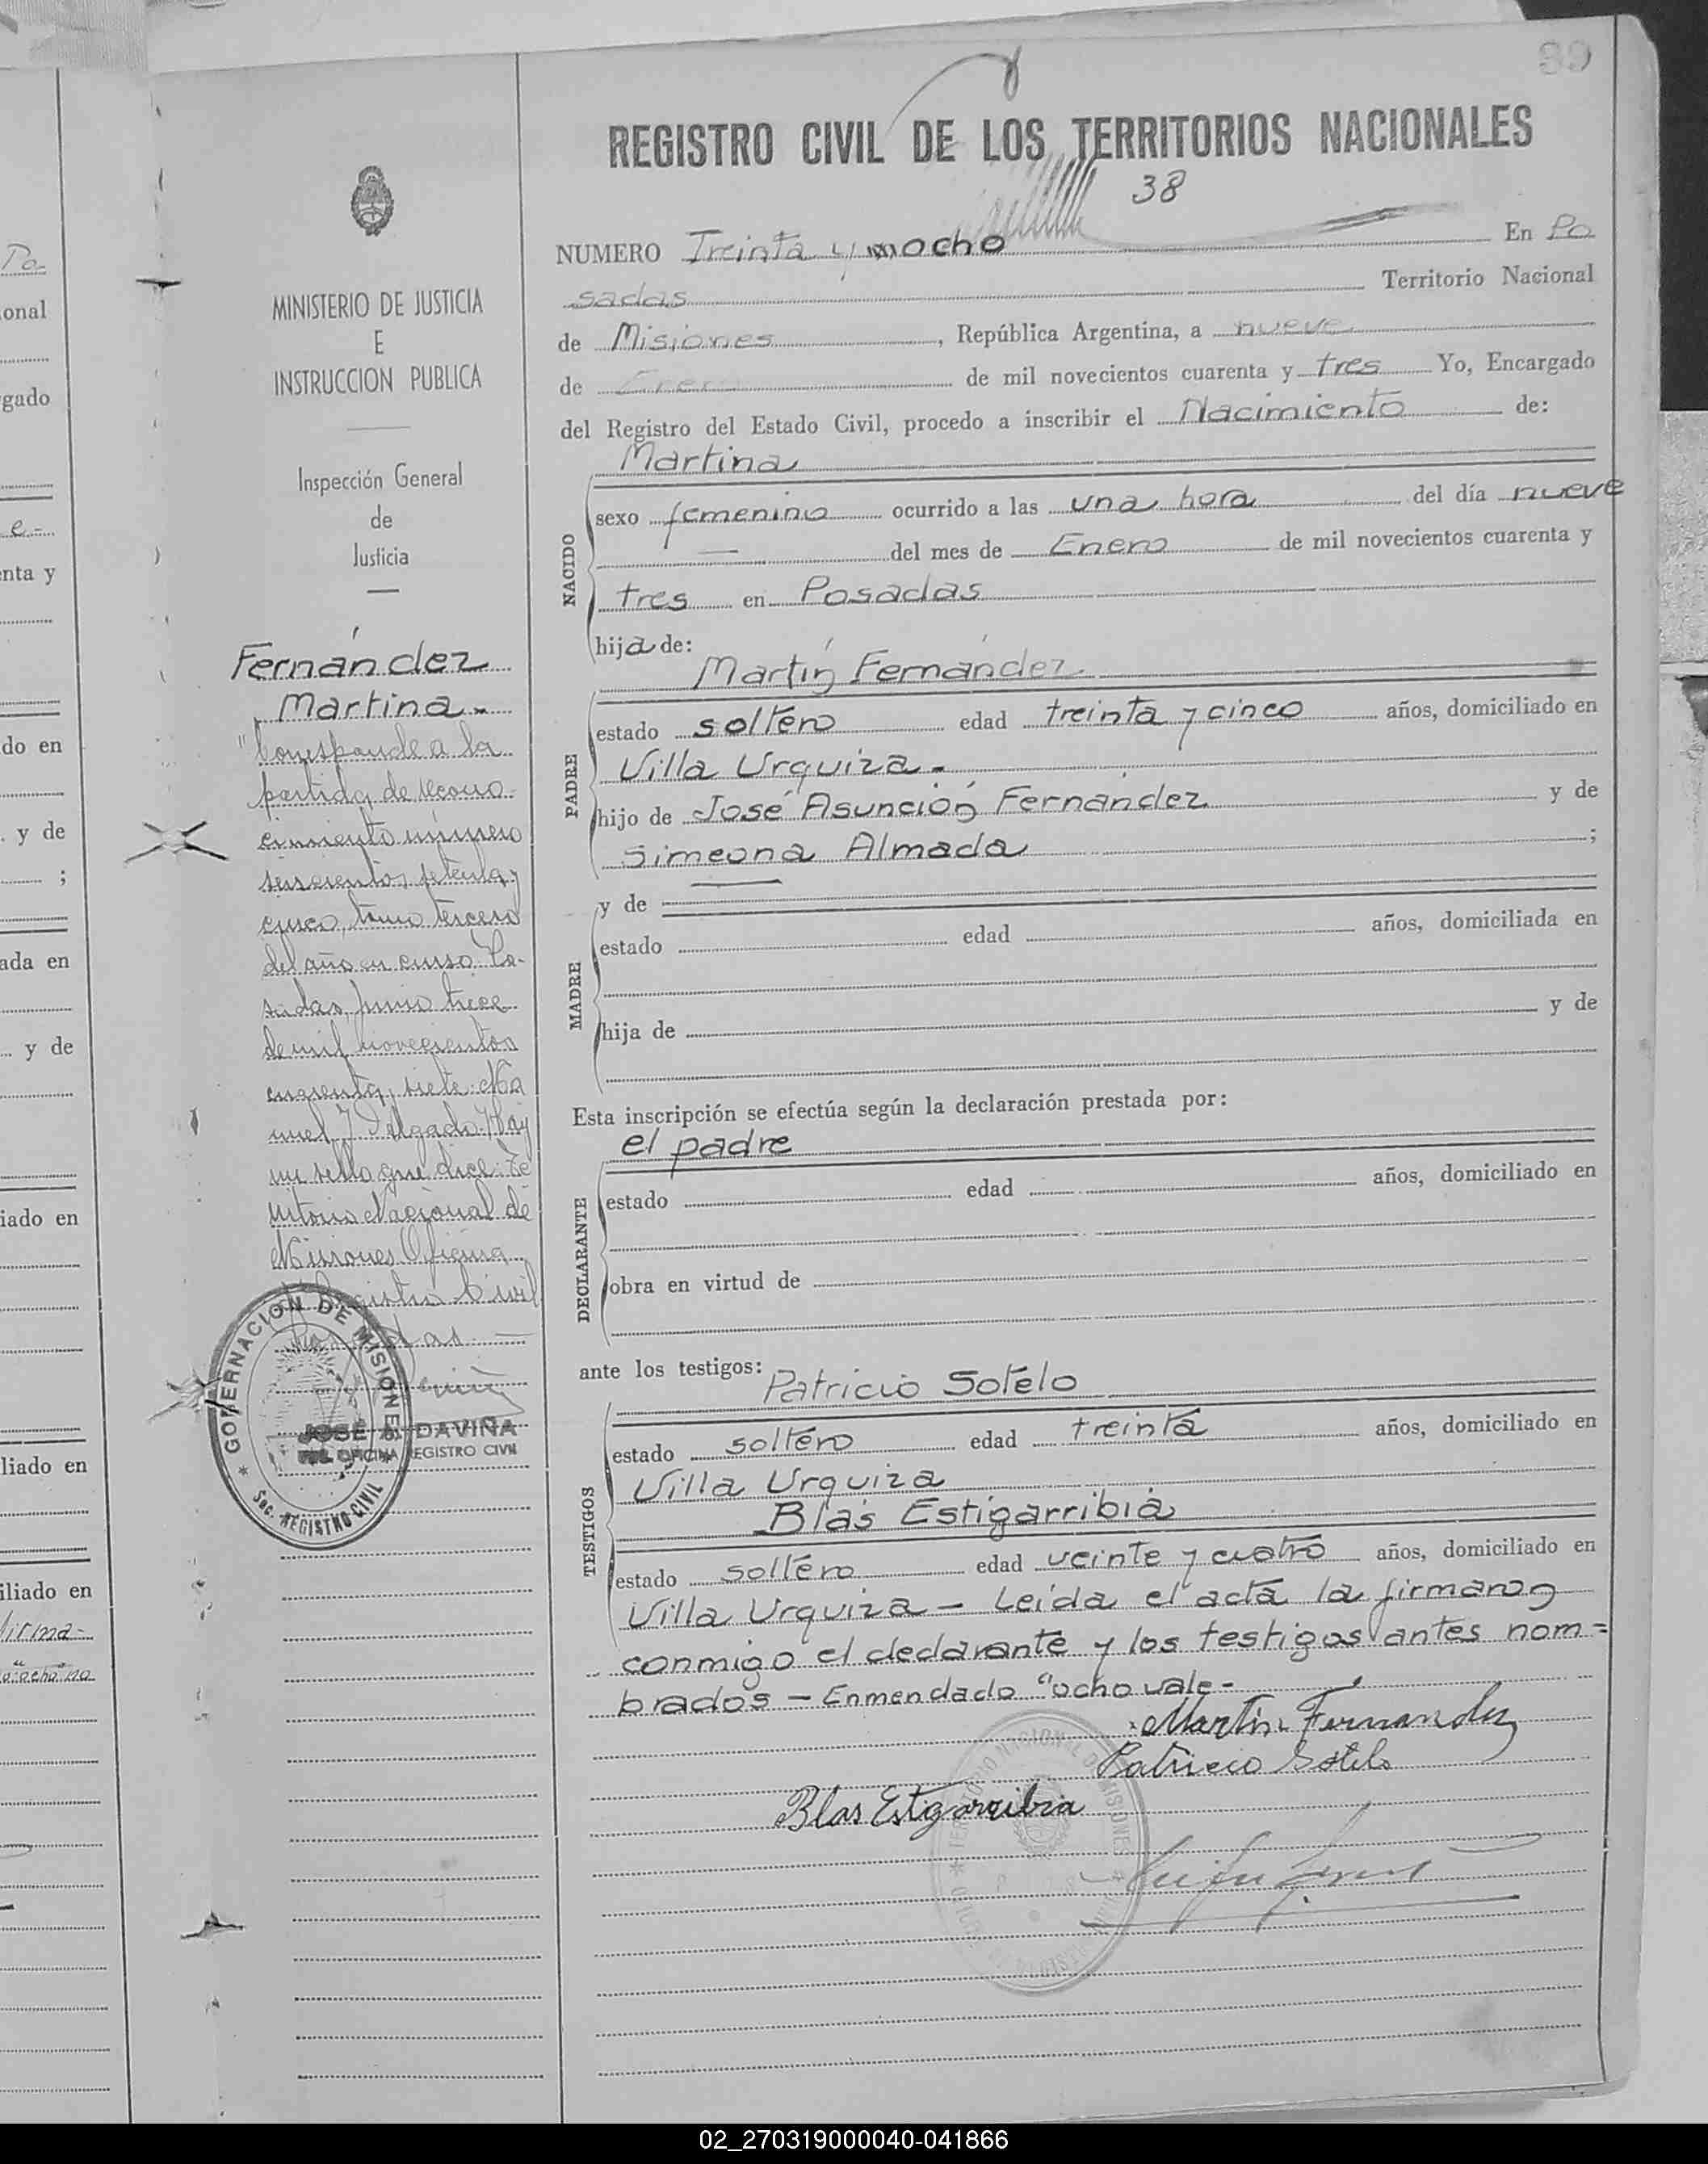 89
REGISTRO CIVIL DE LOS TERRITORIOS NACIONALES
38
NUMERO Treinta y ocho En Po
sadas Territorio Nacional
de Misiones, República Argentina, a nueve
de Enero de mil novecientos cuarenta y tres Yo, Encargado
del Registro del Estado Civil, procedo a inscribir el Nacimiento de:
Martina
NACIDO
sexo femenino ocurrido a las una hora del día nueve
— del mes de Enero de mil novecientos cuarenta y
tres en Posadas
hija de:
Martín Fernández
PADRE
estado soltero edad treinta y cinco años, domiciliado en
Villa Urquiza.-
hijo de José Asunción Fernández y de
Simeona Almada ;
y de
MADRE
estado edad años, domiciliada en
hija de y de
Esta inscripción se efectúa según la declaración prestada por:
el padre
DECLARANTE
estado edad años, domiciliado en
obra en virtud de
ante los testigos:
Patricio Sotelo
TESTIGOS
estado soltero edad treinta años, domiciliado en
Villa Urquiza
Blás Estigarribia
estado soltero edad veinte y cuatro años, domiciliado en
Villa Urquiza — Leída el acta la firmaron
conmigo el declarante y los testigos antes nom=
brados — Enmendado "ocho vale-
Martín Fernandez
Patricio Sotelo
Blas Estigarribia
MINISTERIO DE JUSTICIA
E
INSTRUCCION PUBLICA
Inspección General
de
Justicia
Fernández
Martina.-
"Corresponde a la
partida de recono-
cimiento número
seiscientos setenta y
cinco, tomo tercero
del año en curso. Po-
sadas, junio trece
de mil novecientos
cuarenta y siete. Ma
nuel J. Delgado. Hay
un sello que dice: Te
rritorio Nacional de
Misiones Oficina
Registro Civil
Posadas. —
GOBERNACION DE MISIONES
Sec. REGISTRO CIVIL
JOSÉ A. DAVIÑA
OFICINA REGISTRO CIVIL
Po-
onal
gado
e-
enta y
do en
. y de
;
ada en
y de
iado en
liado en
iliado en
firma-
02_270319000040-041866